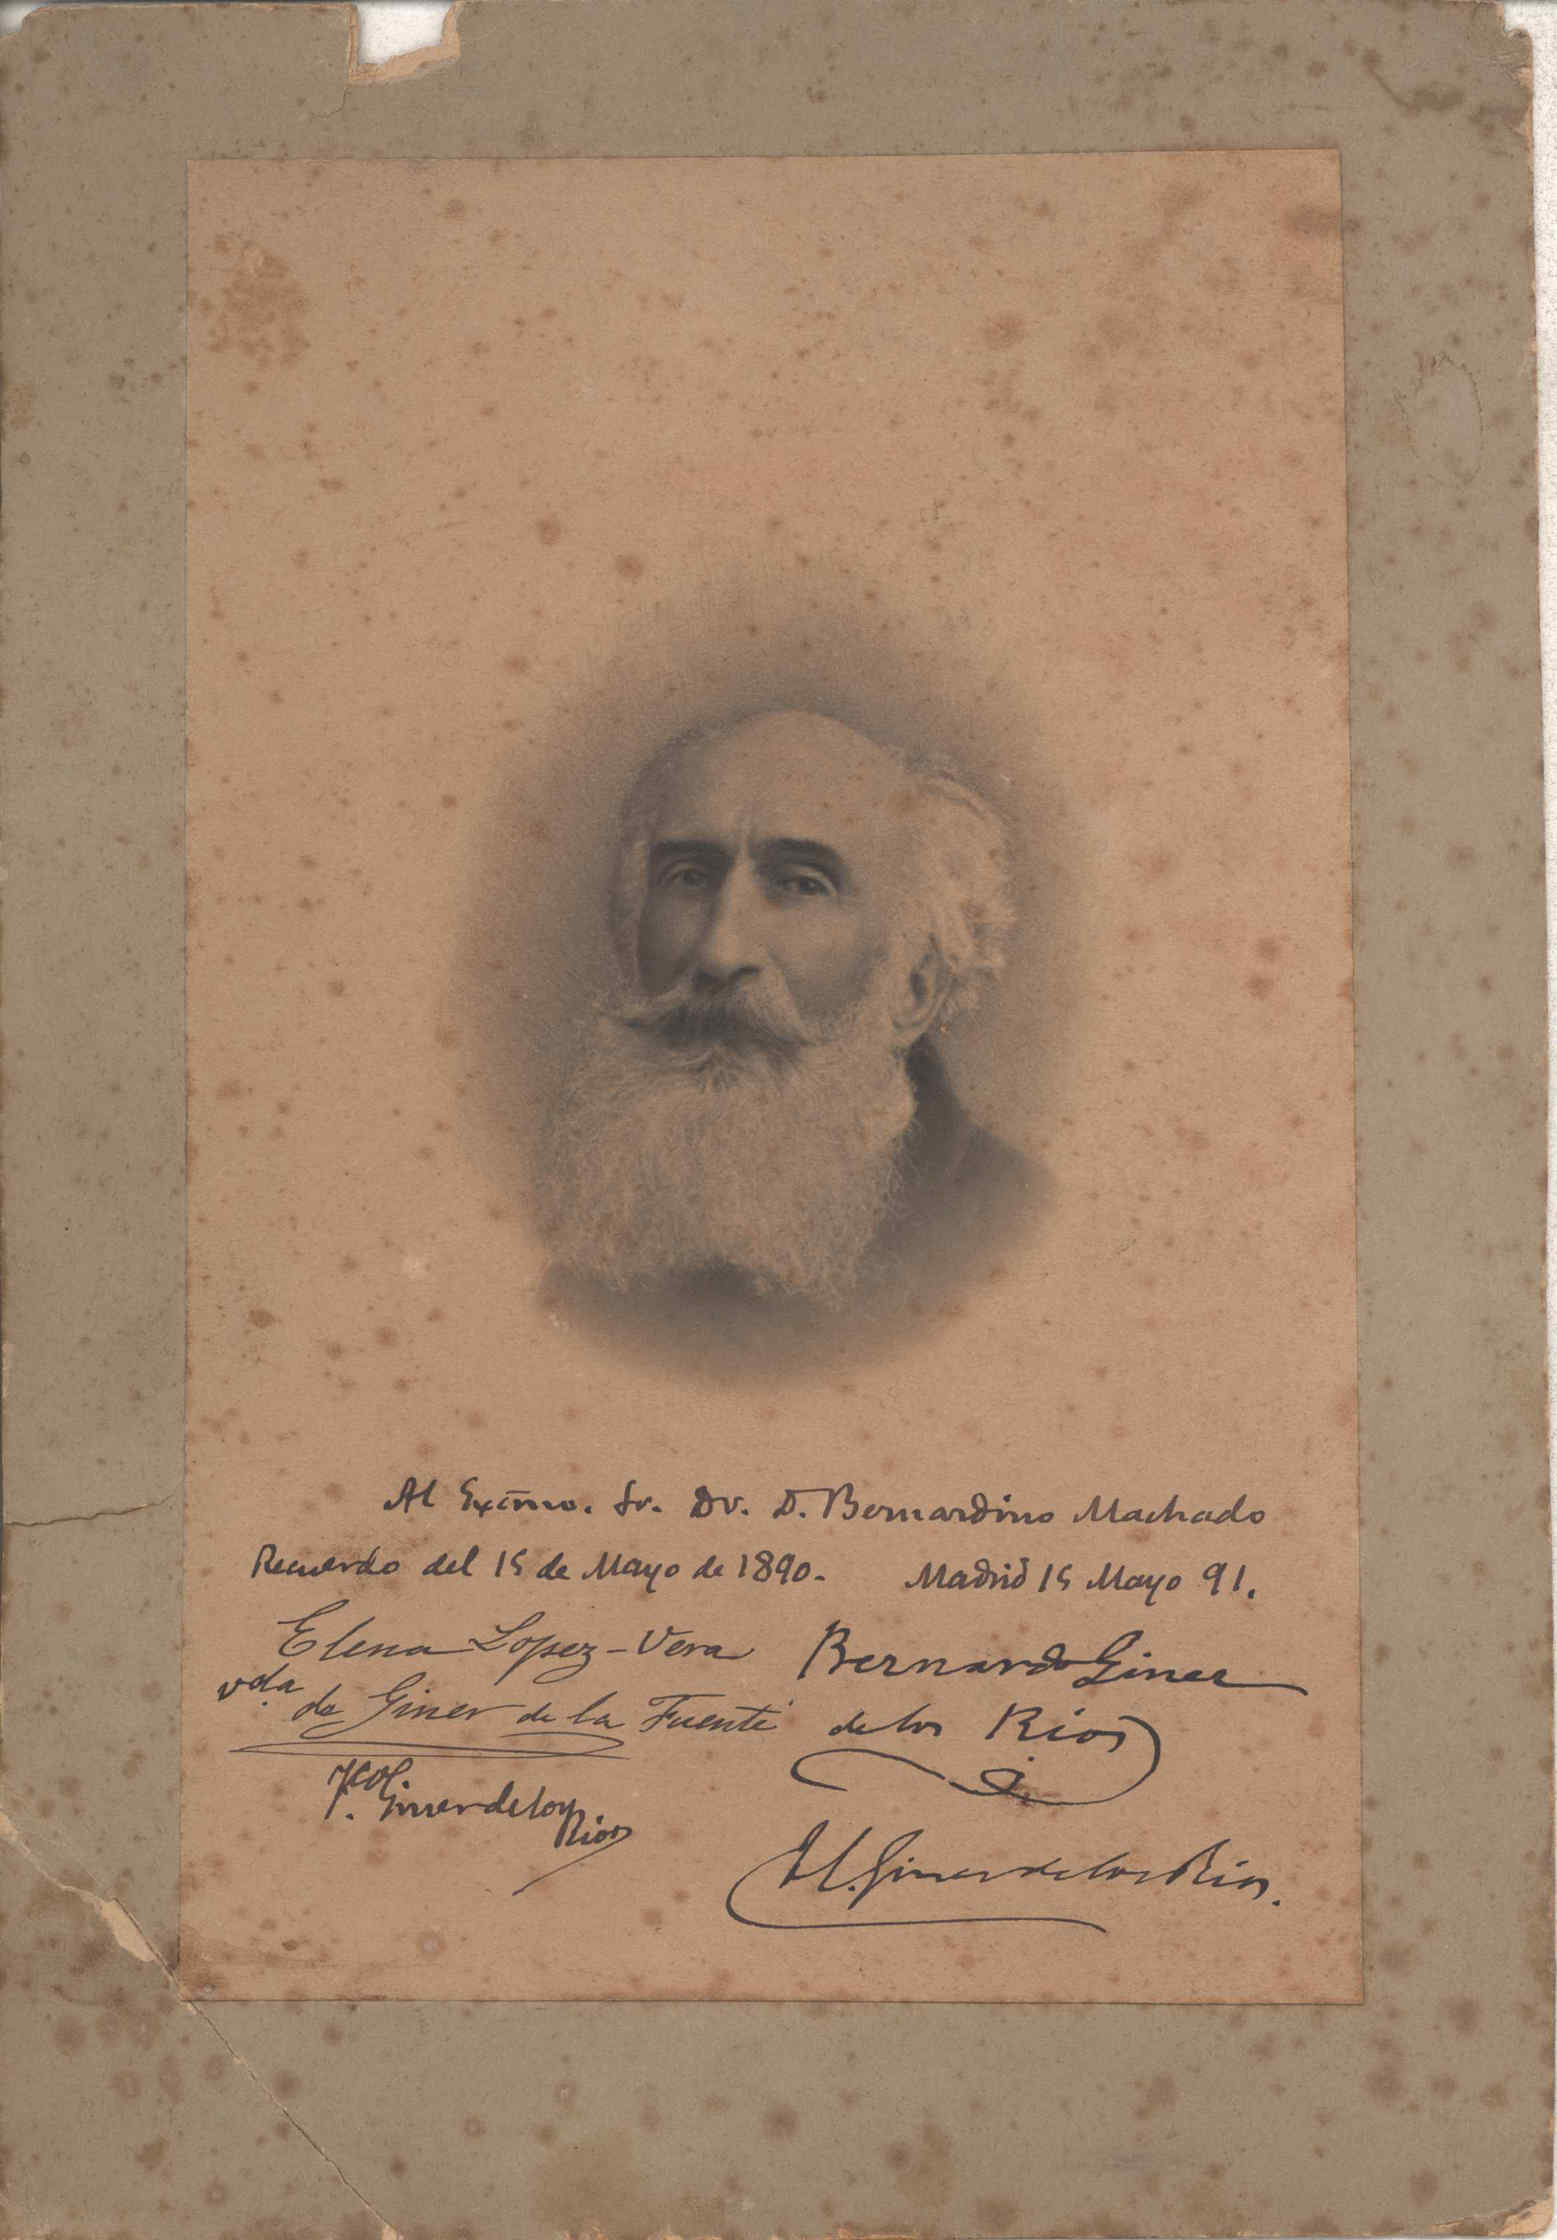 Al Excmo. Sr. Dr. D. Bernardino Machado
Recuerdo del 15 de Mayo de 1890. Madrid 15 Mayo 91.
Elena Lopez-Vera
vda. de Giner de la Fuente
Bernardo Giner
de los Rios
Fco. Giner de los
Rios
H. Giner de los Rios.